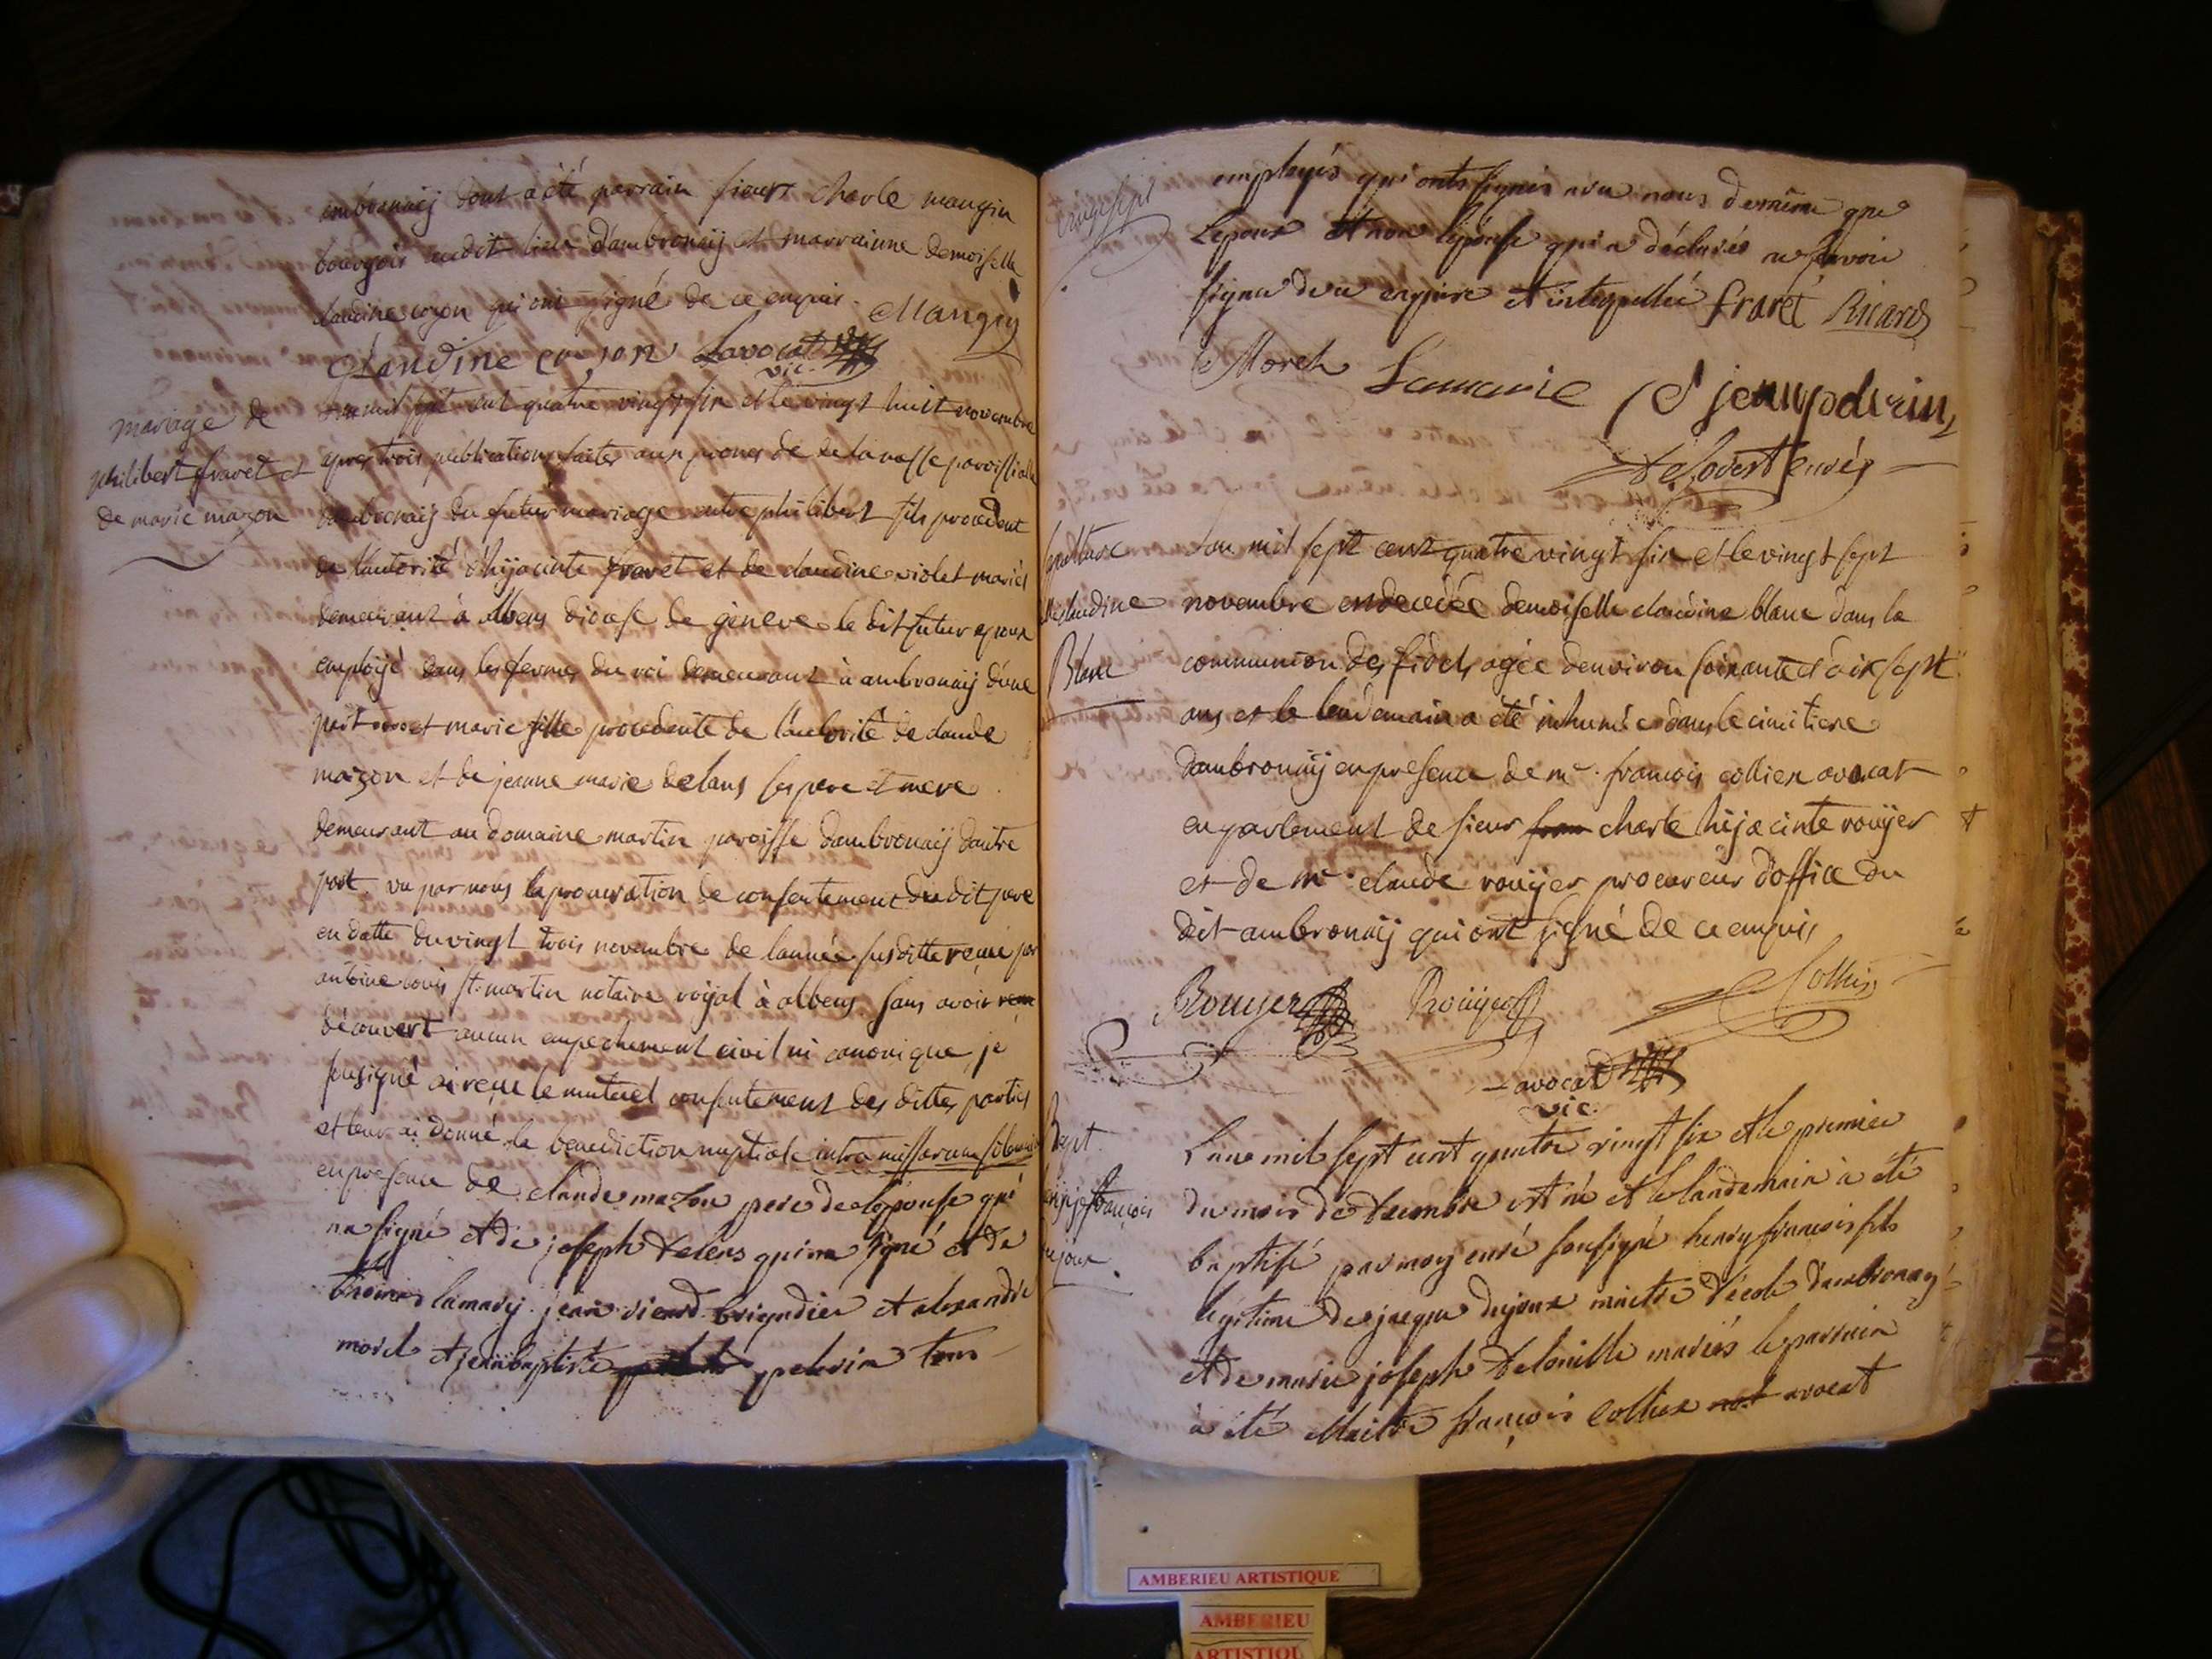 ambronaij dont a été parrain sieur charle mangin
bourgois audit lieu d'ambronaij et marrainne demoiselle
claudine cozon qui ont signé de ce enquis. Mangin
Claudine cozon Lavocat
vic.
mariage de
philibert fravet et
de marie mazon
Lan mil sept cent quatre vingt six et le vingt huit novembre
apres trois publications faites aux prones de de la messe paroissialle
dambronaij du futur mariage entre philibert fils procedent
de l'autorité d'hijacinte fravet et de claudine violet mariés
demeurant à albens diocese de geneve le dit futur epoux
employé dans les fermes du roi demeurant à ambronaij d'une
part et marie fille procedente de l'autorité de claude
maizon et de jeanne marie delans ses pere et mere
demeurant au domaine martin paroisse dambronaij dautre
part. vu par nous la procuration de consentement dudit pere
en datte du vingt trois novembre de lannée susditte reçue par
antoine louis st. martin notaire roijal à albens sans avoir
découvert aucun empechement civil ni canonique, je
sousigné ai reçu le mutuel consentement des dittes parties
et leur ai donné la benediction nuptiale intra missarum solemnia
en presence de claude mazon pere de lepouse qui
na signé et de joseph delens qui na signé et de
thomas lamary jean ricard brigadier et alexandre
morel et jean baptiste pelerin tous
employés qui onts signés avec nous de même que
Lepoux et non lépouse qui a déclarée ne savoir
signer de ce enquise et interpellée fravet Ricard
Morel Lamarie J jean pelerin
Delovest curé
sepulture
claudine
Blanc
Lan mil sept cent quatre vingt six et le vingt sept
novembre est decedée demoiselle claudine blanc dans la
communion des fidels agée denviron soixante et dix sept
ans et le lendemain a été inhumée dans le cimitiere
dambronaij en presence de me. francois collier avocat
en parlement de sieur charle hijacinte rouijer
et de me. claude rouijer procureur d'office du
dit ambronaij qui ont signé de ce enquis
Rouyer Rouijer Collier
Lavocat
vic.
Bapt.
françois
dujoux
L'an mil sept cent quatre vingt six et le premier
du mois de decembre est né et le landemain à été
baptisé par moy curé sousigné henry francois fils
legitime de jacque dujoux maitre d'école d'ambronay
et de marie joseph mariés le parrain
à été Maitre françois Collier avocat
AMBERIEU ARTISTIQUE
AMBERIEU
ARTISTIQU